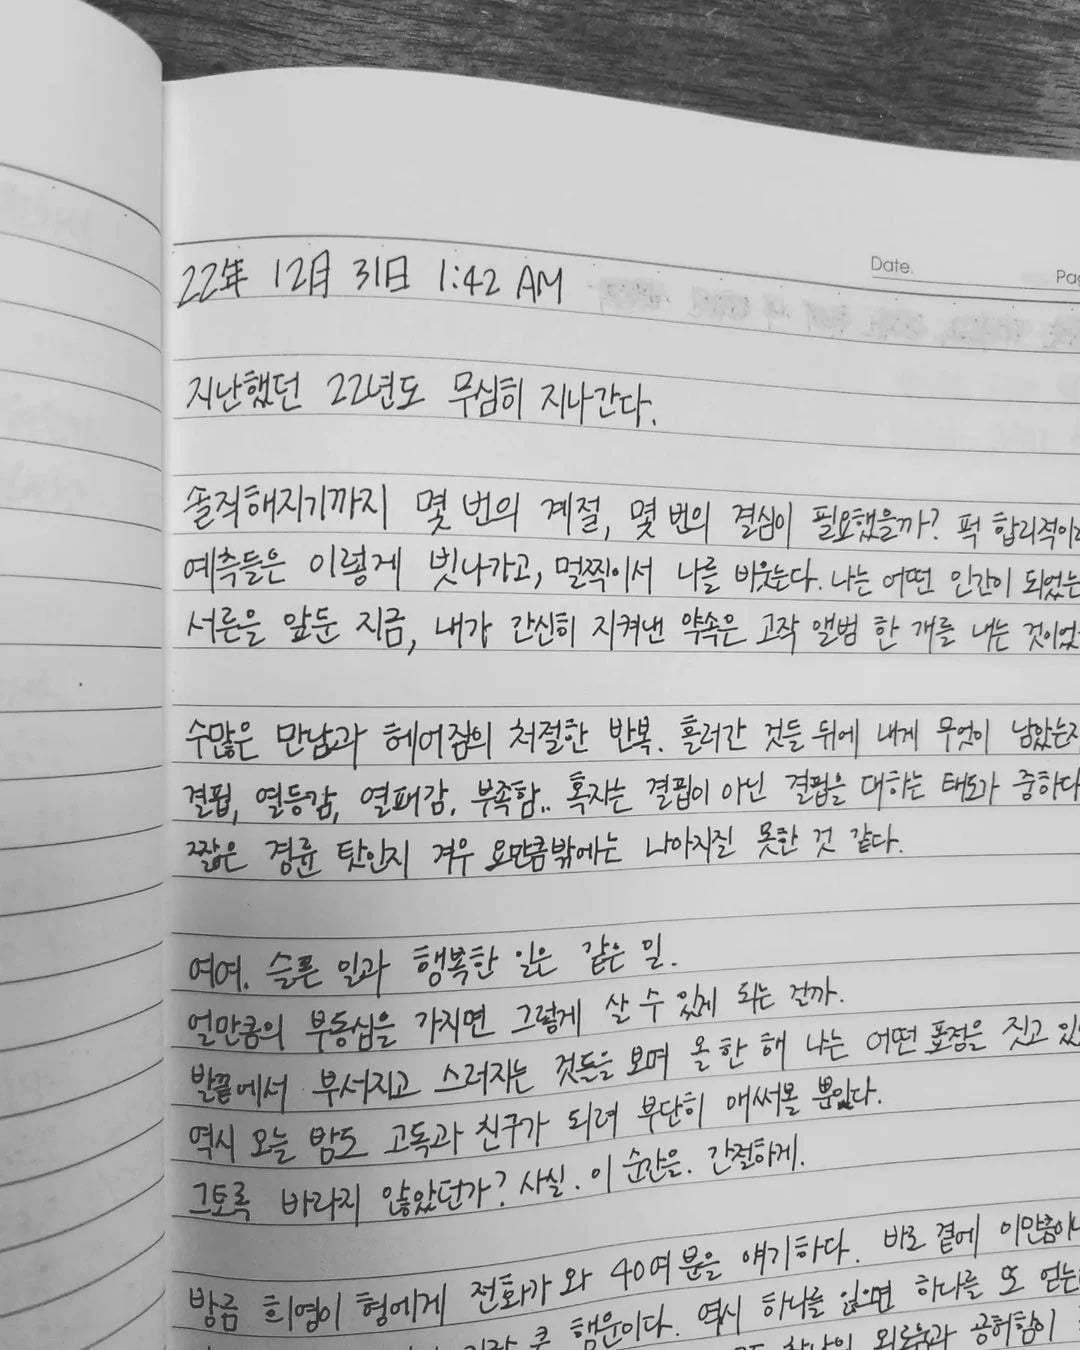 Date.
Pag
22年 12月 31日 1:42 AM
지난했던 22년도 무심히 지나간다.
솔직해지기까지 몇 번의 계절, 몇 번의 결심이 필요했을까? 퍽 합리적이라
예측들은 이렇게 빗나가고, 멀찍이서 나를 비웃는다. 나는 어떤 인간이 되었는
서른을 앞둔 지금, 내가 간신히 지켜낸 약속은 고작 앨범 한 개를 내는 것이었
수많은 만남과 헤어짐의 처절한 반복. 흘러간 것들 뒤에 내게 무엇이 남았는지
결핍, 열등감, 열패감, 부족함.. 혹자는 결핍이 아닌 결핍을 대하는 태도가 중하다
짧은 경륜 탓인지 겨우 요만큼밖에는 나아지질 못한 것 같다.
여여. 슬픈 일과 행복한 일은 같은 일.
얼만큼의 부동심을 가지면 그렇게 살 수 있게 되는 걸까.
발끝에서 부서지고 스러지는 것들을 보며 올 한 해 나는 어떤 표정을 짓고 있
역시 오늘 밤도 고독과 친구가 되려 부단히 애써볼 뿐이다.
그토록 바라지 않았던가? 사실. 이 순간을. 간절하게.
방금 희영이 형에게 전화가 와 40여 분을 얘기하다. 바로 곁에 이만큼이나
큰 행운이다. 역시 하나를 잃으면 하나를 또 얻는
외로움과 공허함이